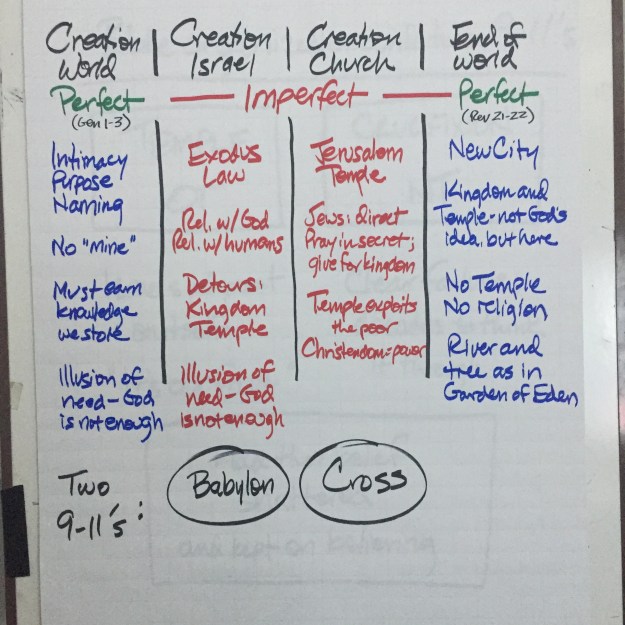 Creation
World
Perfect
(Gen 1-3)
Intimacy
Purpose
Naming
No "mine"
Must earn
knowledge
we store
Illusion of
need-God
is not enough
Creation
Israel
Imperfect
Exodus
Law
Rel. w/God
Rel. w/humans
Detours:
Kingdom
Temple
Illusion of
need-God
is not enough
Creation
Church
Jerusalem
Temple
direct
Pray in secret;
give for kingdom
Temple exploits
the poor
Christendom=power
End of
World
Perfect
(Rev 21-22)
New City
Kingdom and
Temple-not God's
idea, but here
No Temple
No religion
River and
tree as in
Garden of Eden
Two
9-11's:
Babylon
Cross